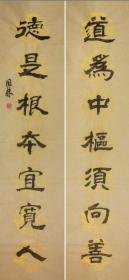 道為中樞須向善
德是根本宜寬人